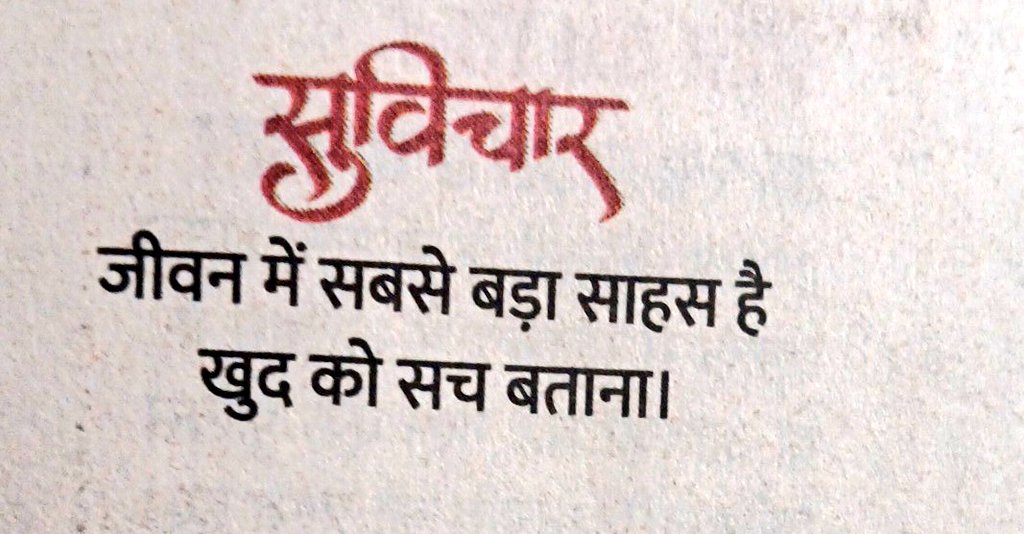 सुविचार
जीवन में सबसे बड़ा साहस है
खुद को सच बताना।